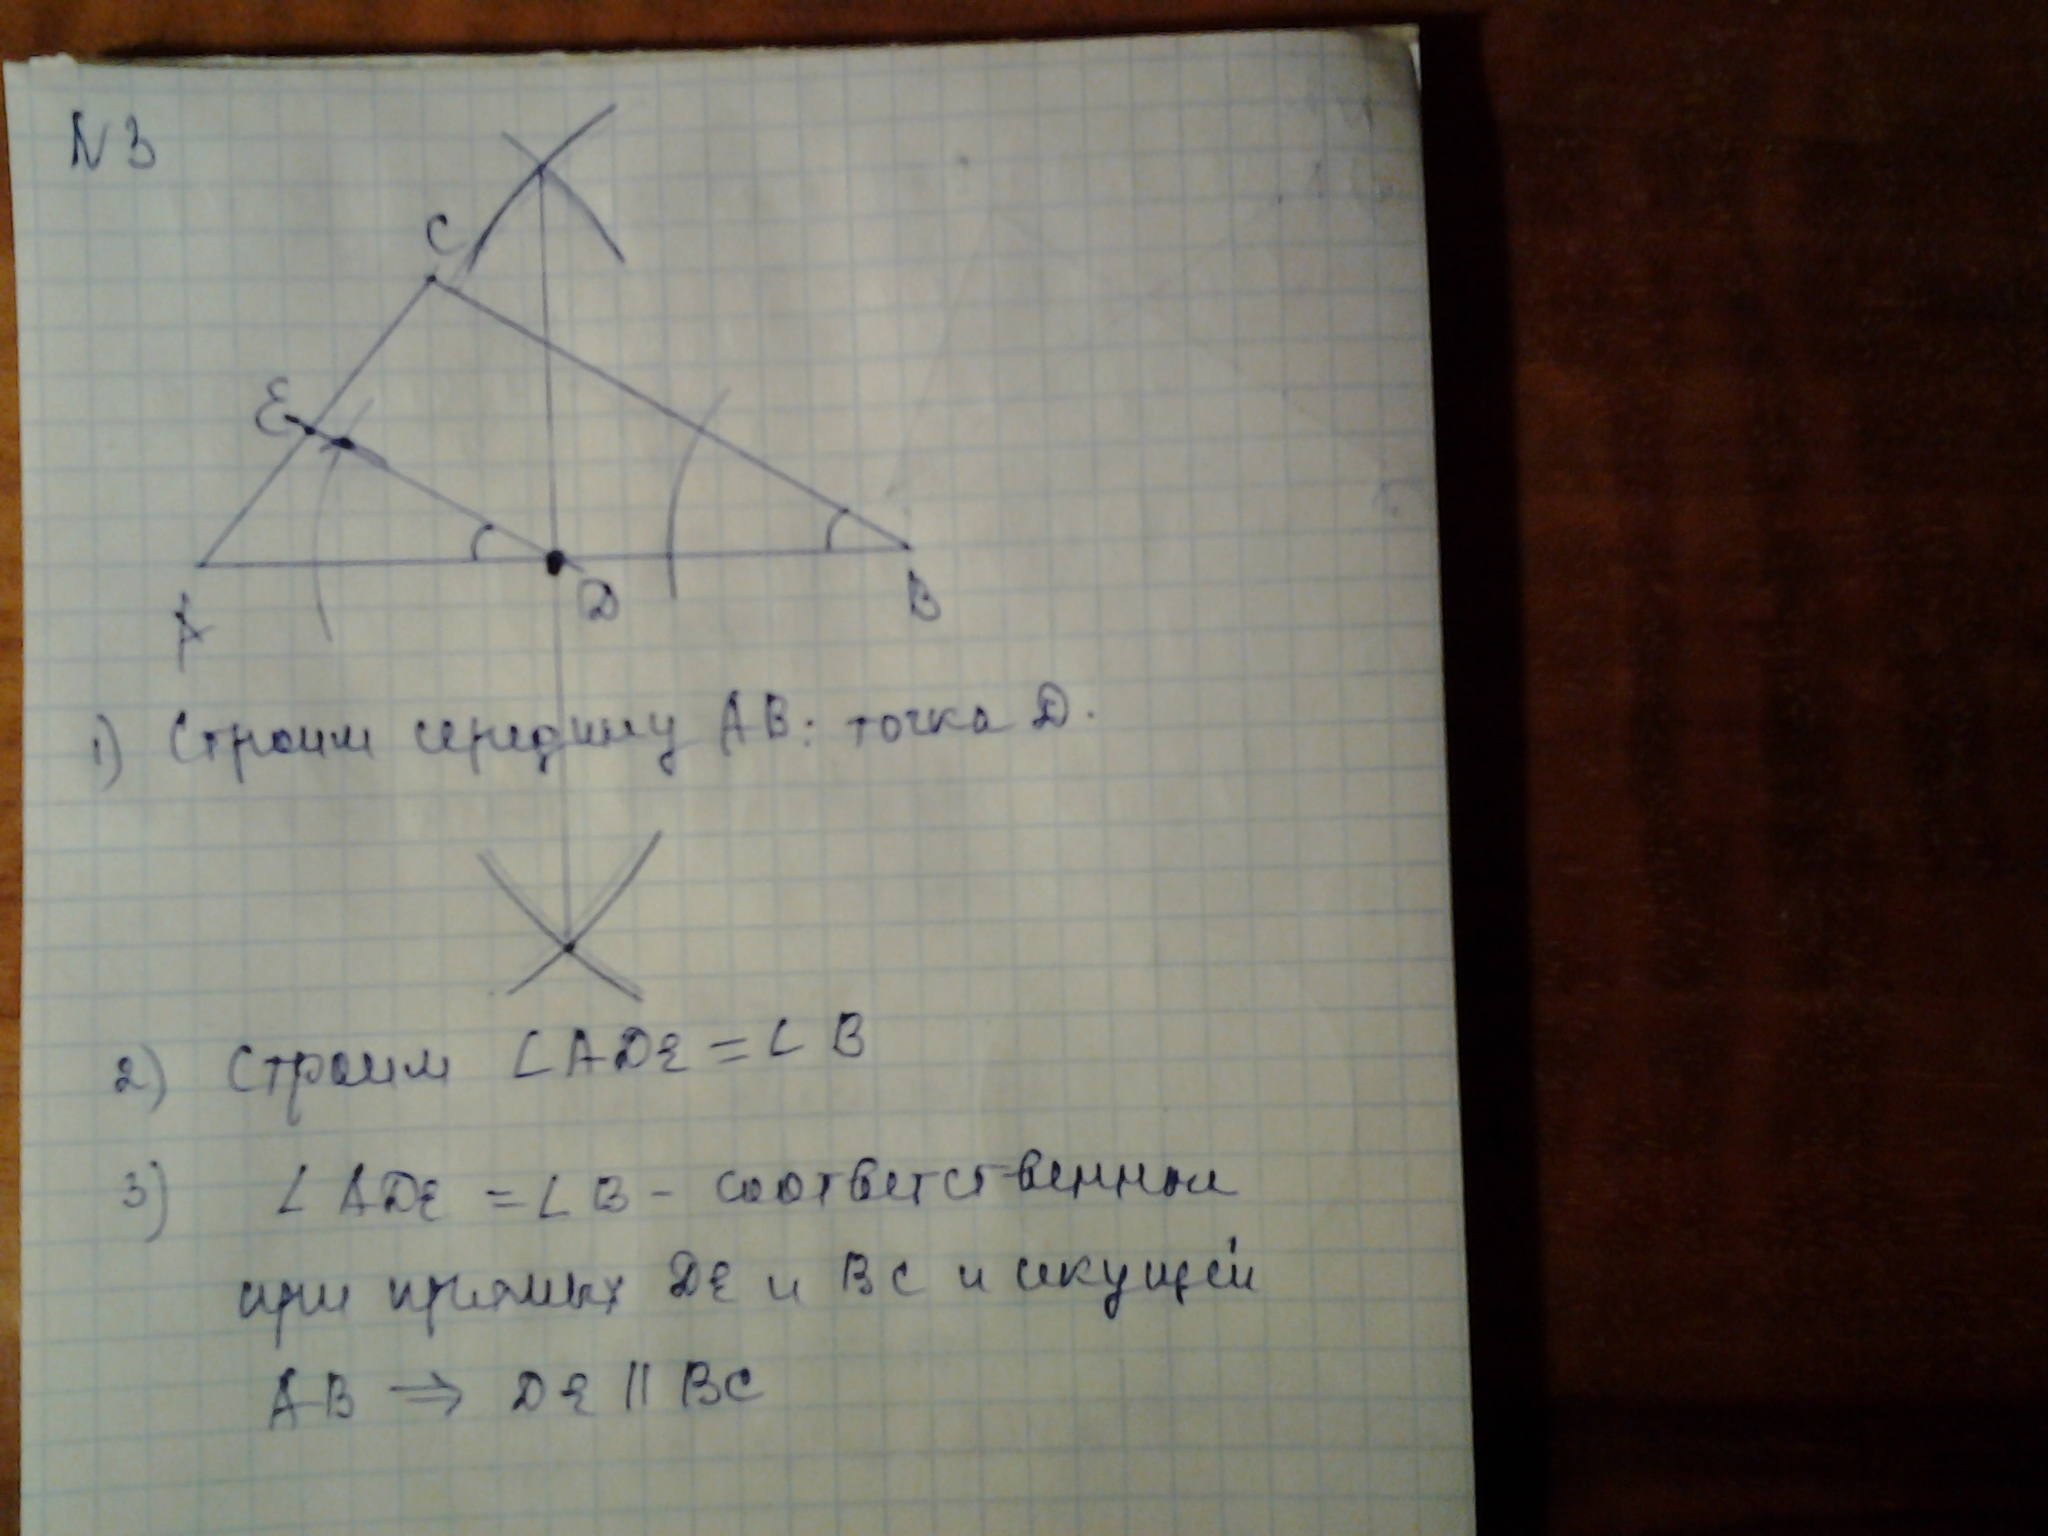 N 3
C
E
A
D
B
1) Строим середину AB: точка D.
2) Строим ∠ADE = ∠B
3) ∠ADE = ∠B - соответственные
при прямых DE и BC и секущей
AB ⇒ DE || BC